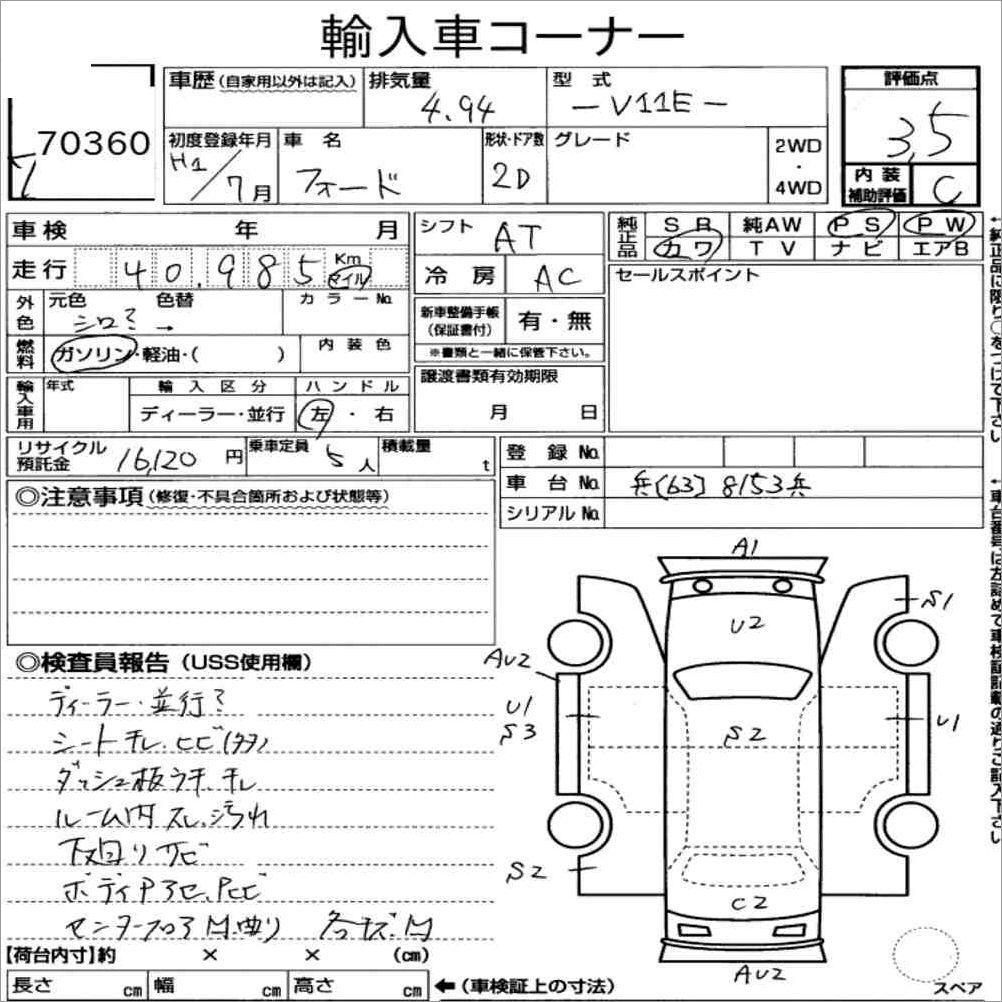 輸入車コーナー
70360
車歴(自家用以外は記入) 排気量 4.94 型式 -V11E- 評価点 3,5
初度登録年月 H1/7月 車名 フォード 形状・ドア数 2D グレード 2WD・4WD 内装補助評価 C
車検 年 月 シフト AT 純正品 SR 純AW PS PW
カワ TV ナビ エアB
走行 40.985 Km マイル 冷房 AC セールスポイント
外色 元色 シロ? → 色替 カラーNo. 新車整備手帳(保証書付) 有・無
※書類と一緒に保管下さい。
燃料 ガソリン・軽油・( ) 内装色
譲渡書類有効期限 月 日
輸入車用 年式 輸入区分 ディーラー・並行 ハンドル 左・右
リサイクル預託金 16,120円 乗車定員 5人 積載量 t 登録No.
車台No. 兵[63]8153兵
シリアルNo.
◎注意事項(修復・不具合箇所および状態等)
◎検査員報告(USS使用欄)
ディーラー・並行?
シート キレ.ヒビ(タタ)
ダッシュ板ウキ.キレ
ルーム内スレ.汚れ
下回りサビ
ボディ
センターフロア M.曲り
A1
S1
U2
AU2
U1
S3
S2
U1
S2
C2
AU2
スペア
【荷台内寸】約 × × (cm)
長さ cm 幅 cm 高さ cm ←(車検証上の寸法)
←純正品に限り○をつけて下さい
←車台番号は左詰めで車検証記載の通りご記入下さい